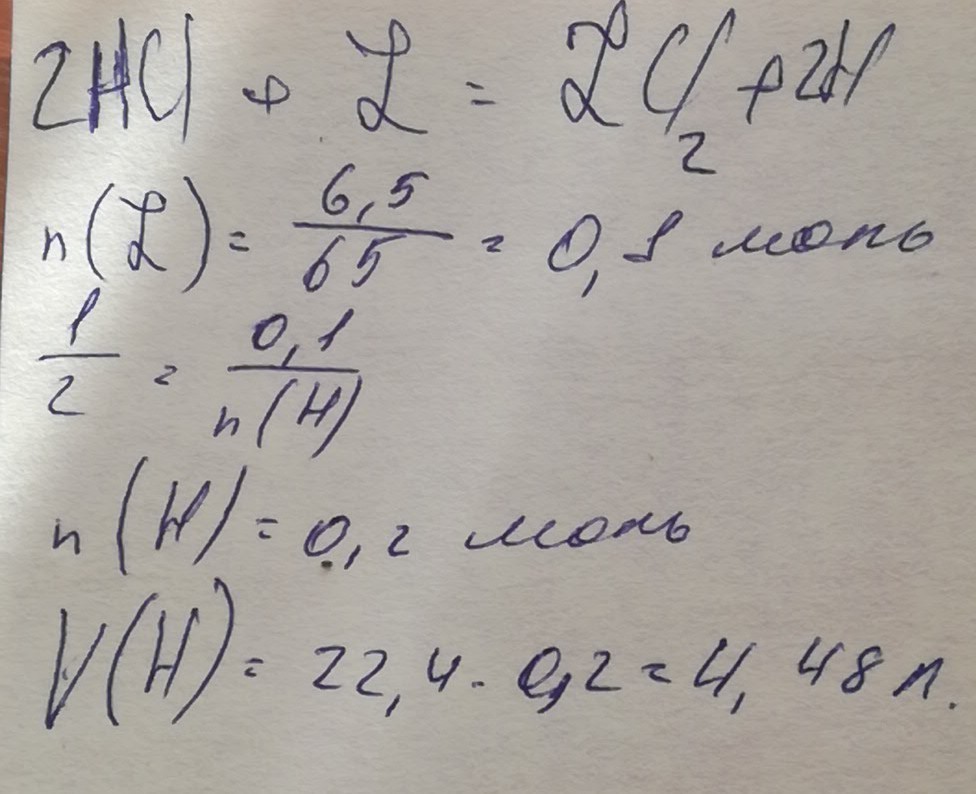 2HCl + Z = ZCl₂ + 2H
n(Z) = 6,5/65 = 0,1 моль
1/2 = 0,1/n(H)
n(H) = 0,2 моль
V(H) = 22,4 · 0,2 = 4,48 л.